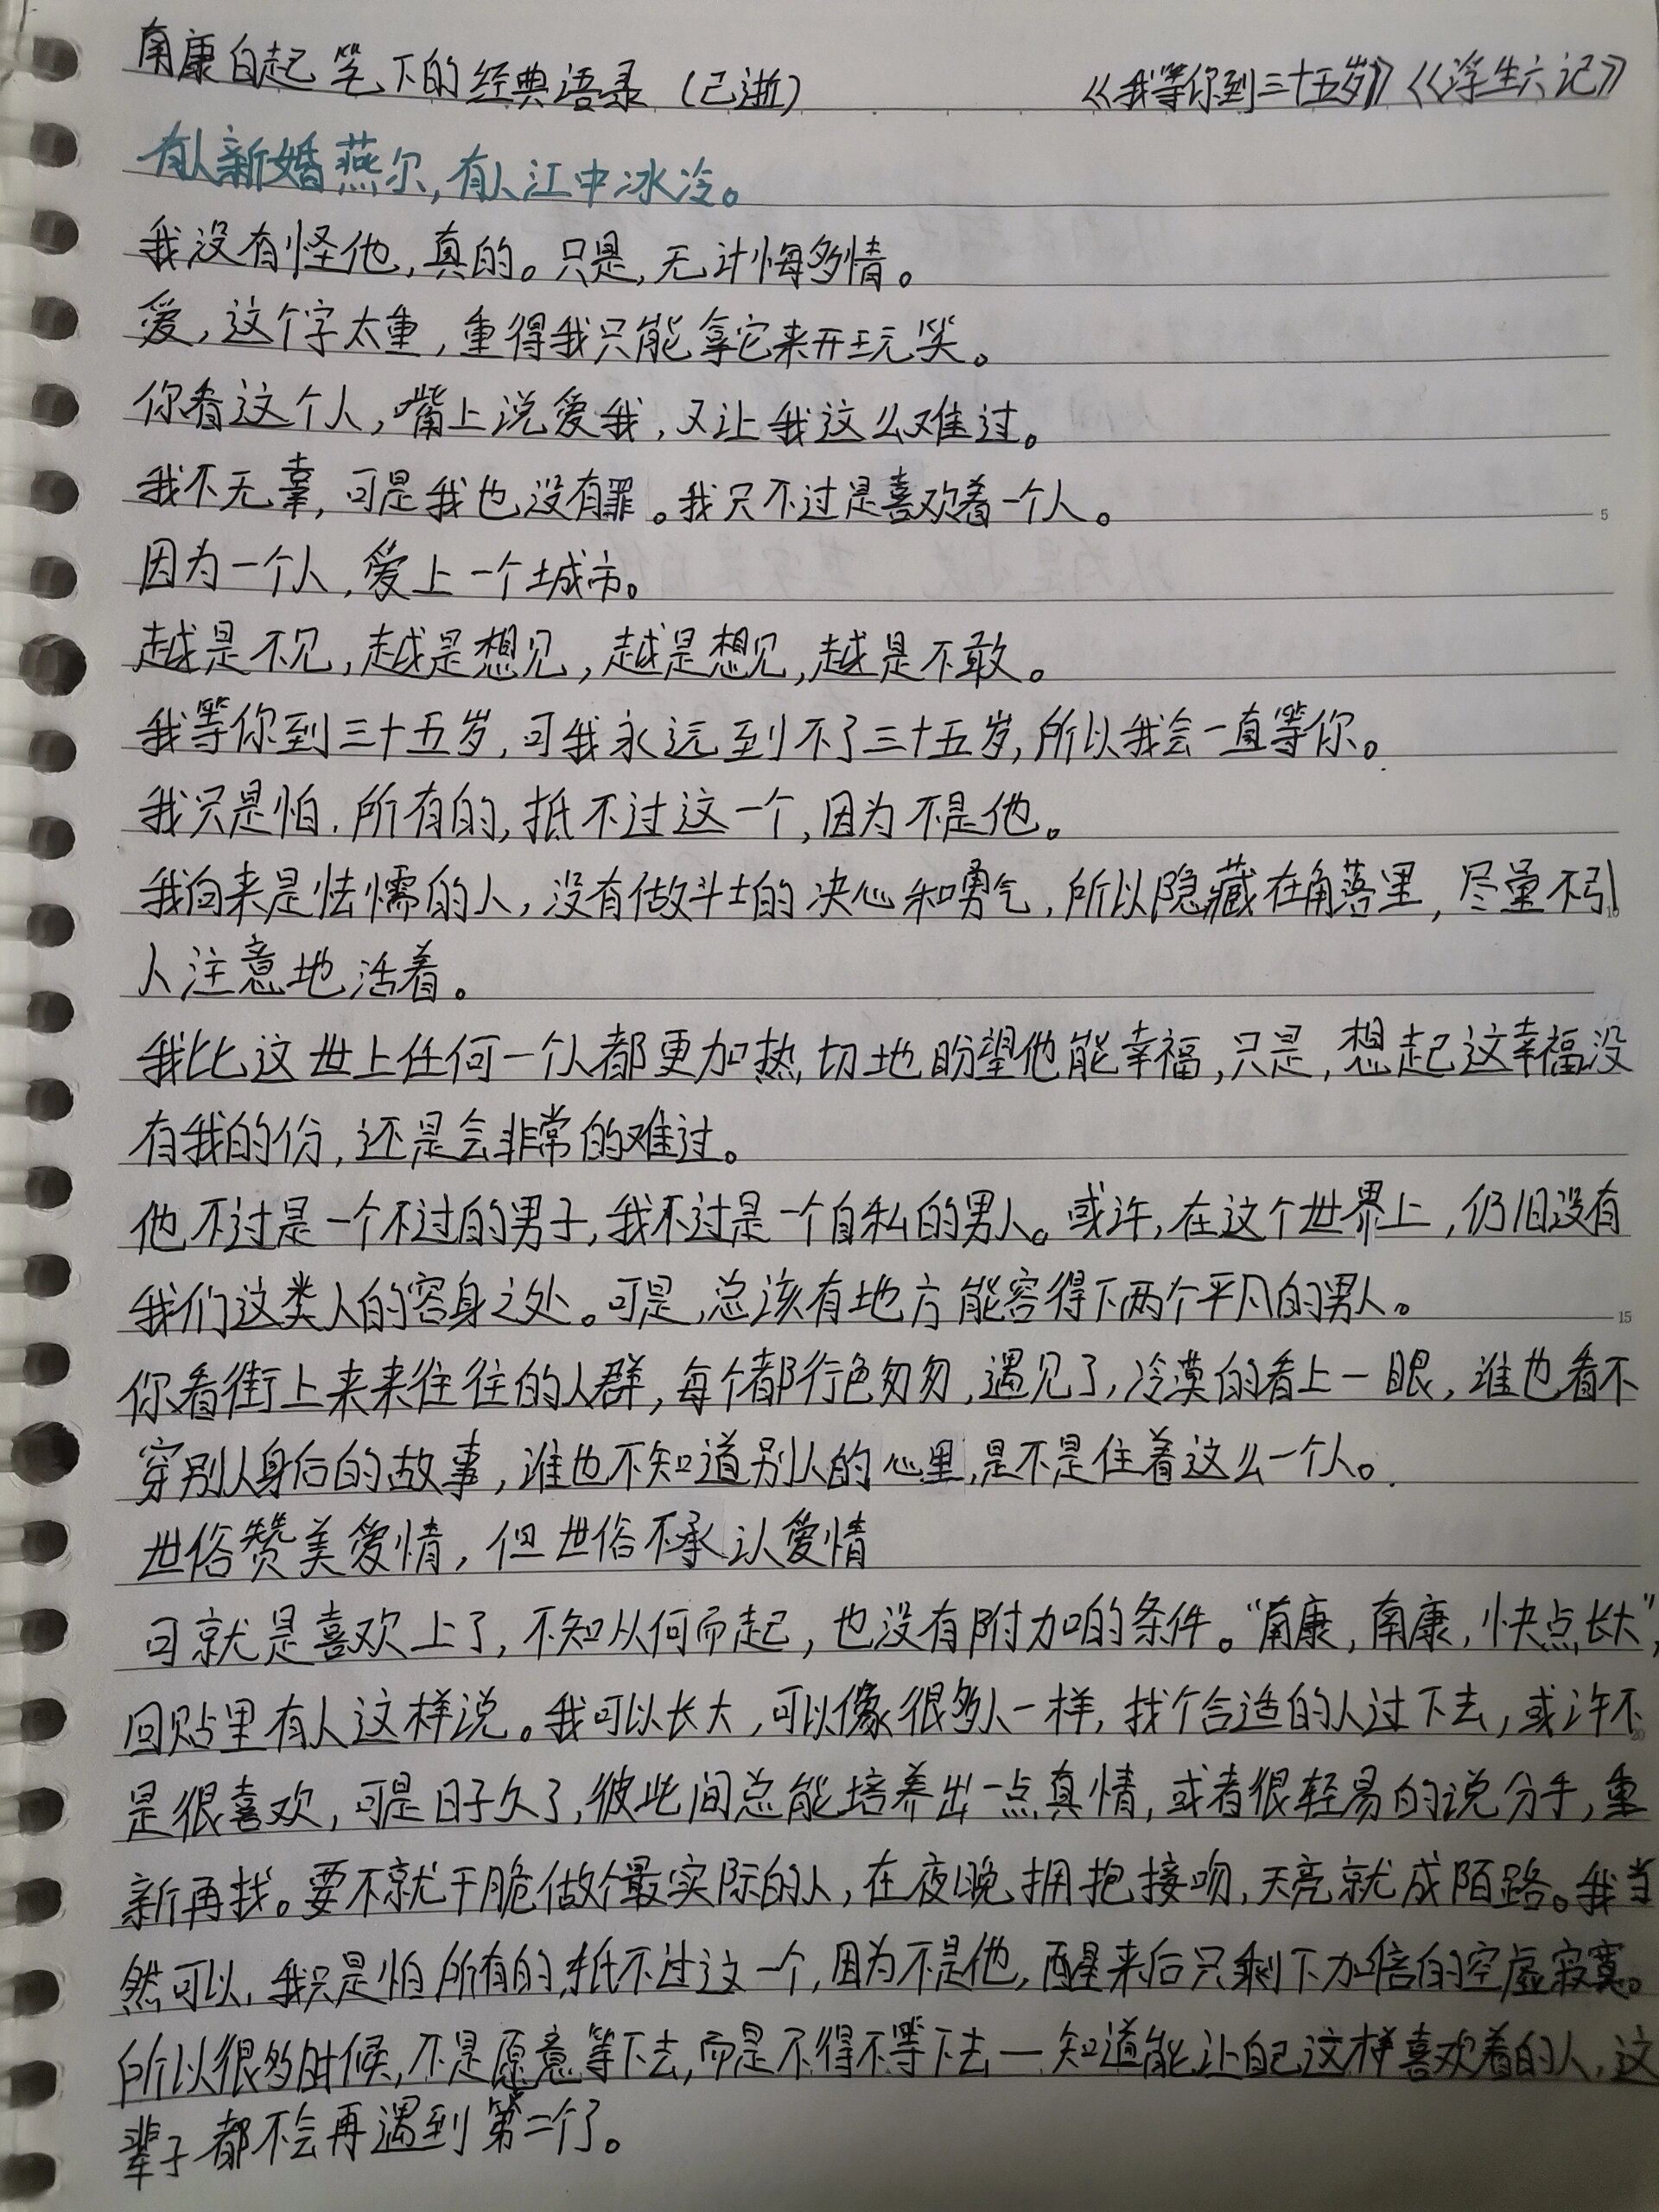 南康白起笔下的经典语录（已逝） 《我等你到三十五岁》《浮生六记》
有人新婚燕尔,有人江中冰冷。
我没有怪他,真的。只是,无计悔多情。
爱,这个字太重,重得我只能拿它来开玩笑。
你看这个人,嘴上说爱我,又让我这么难过。
我不无辜,可是我也没有罪。我只不过是喜欢着一个人。
5
因为一个人,爱上一个城市。
越是不见,越是想见,越是想见,越是不敢。
我等你到三十五岁,可我永远到不了三十五岁,所以我会一直等你。
我只是怕,所有的,抵不过这一个,因为不是他。
我向来是怯懦的人,没有做斗士的决心和勇气,所以隐藏在角落里,尽量不引
10
人注意地活着。
我比这世上任何一个人都更加热切地盼望他能幸福,只是,想起这幸福没
有我的份,还是会非常的难过。
他不过是一个不过的男子,我不过是一个自私的男人。或许,在这个世界上,仍旧没有
我们这类人的容身之处。可是,总该有地方能容得下两个平凡的男人。
15
你看街上来来往往的人群,每个都行色匆匆,遇见了,冷漠的看上一眼,谁也看不
穿别人身后的故事,谁也不知道别人的心里,是不是住着这么一个人。
世俗赞美爱情,但世俗不承认爱情
可就是喜欢上了,不知从何而起,也没有附加的条件。“南康,南康,快点长大”,
回贴里有人这样说。我可以长大,可以像很多人一样,找个合适的人过下去,或许不
20
是很喜欢,可是日子久了,彼此间总能培养出一点真情,或者很轻易的说分手,重
新再找。要不就干脆做个最实际的人,在夜晚拥抱接吻,天亮就成陌路。我当
然可以,我只是怕所有的,抵不过这一个,因为不是他,醒来后只剩下加倍的空虚寂寞。
所以很多时候,不是愿意等下去,而是不得不等下去—知道能让自己这样喜欢着的人,这
辈子都不会再遇到第二个了。